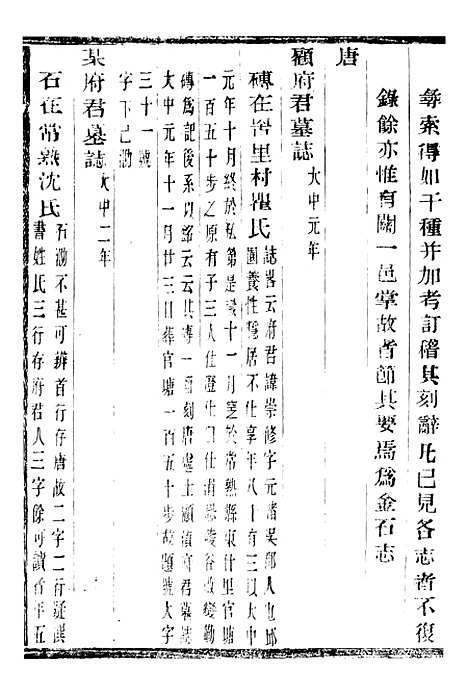 彝索得如干種并加考訂稽其刻辭凡已見各志者不復
錄餘亦惟有關一邑掌故者節其要焉為金石志
唐
顧府君墓誌大中元年
磚在罟里村瞿氏誌畧云府君諱崇修字元諸吳郡人也邱
園養性隱居不仕享年八十有三以大中
元年十月終於私第是歲十一月窆於常熟縣東什里官塘
一百五十步之原有子三人仕澄仕口仕浦恐陵谷改變勒
磚為記後系以銘云云其磚一刻唐處士顧頊府君墓誌
大中元年十一月廿三日葬官塘一百五十步大字題號大字
三十一號
字下已泐
某府君墓誌大中二年
石在常熟沈氏石泐不甚可辨首行存唐故二字二行疑撰
書姓氏三行存府君人三字餘可讀者年五